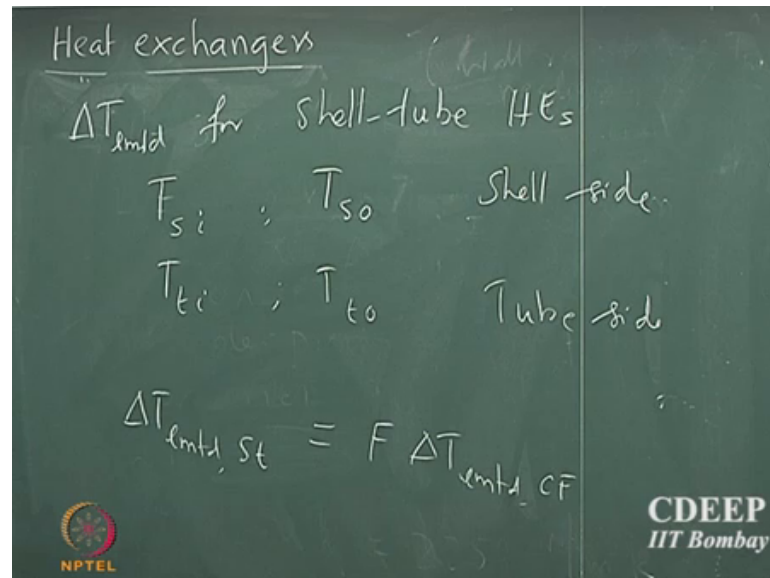 Heat exchangers
ΔT_lmtd for Shell-tube HEs
T_si ; T_so Shell side
T_ti ; T_to Tube side
ΔT_lmtd, St = F ΔT_lmtd, CF
CDEEP
IIT Bombay
NPTEL